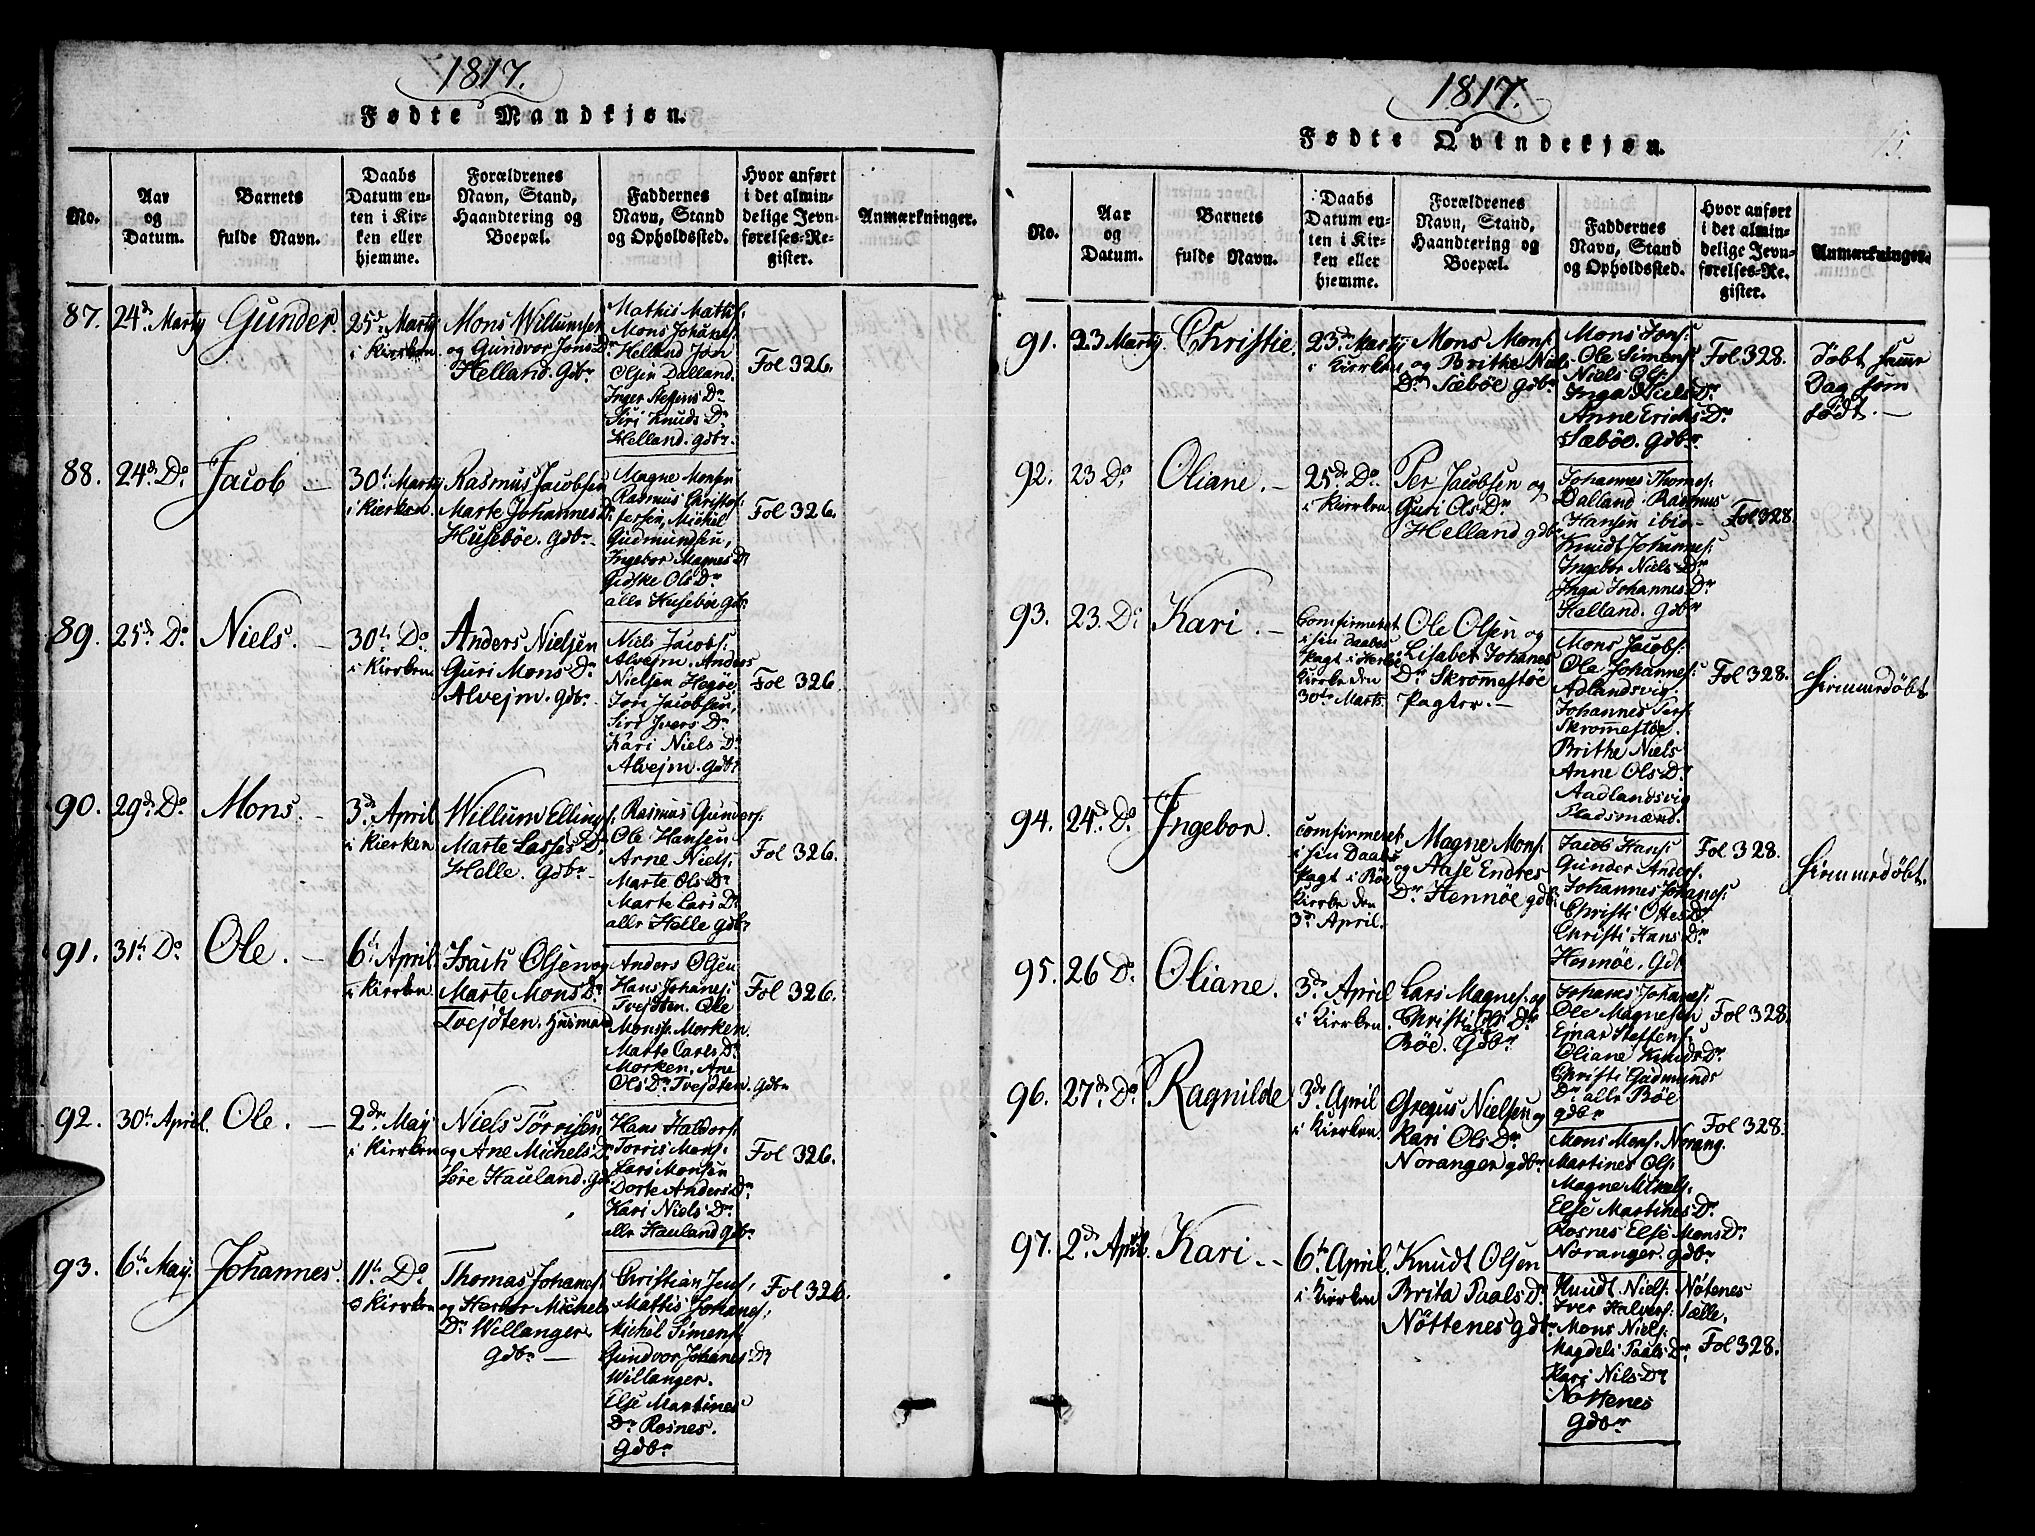 1817.
Fødte Mandkjøn.
No.
Aar
og
Datum.
Barnets
fulde Navn.
Daabs
Datum en-
ten i Kir-
ken eller
hjemme.
Forældrenes
Navn, Stand,
Haandtering og
Boepæl.
Faddernes
Navn, Stand
og Opholdssted.
Hvor anført
i det almin-
delige Jevn-
førelses-Re-
gister.
Anmærkninger.
87.
24d Marty
Gunder.
25d Marty
i Kirken
Mons Willumsen
og Gundvor Jons Dr
Helland. Gdbr
Mathis Maths:
Mons Johanes:
Helland Jon
Olsen Dalland.
Inger Steffens Dr
Siri Knuds Dr
Helland. gdbr.
Fol 326.
88.
24d Do
Jacob –
30te Marty
i Kirken.
Rasmus Jacobsen
Marte Johannes Dr
Husebøe. Gdbr
Magne Monsen
Rasmus Christof
fersen, Michel
Gudmundsen,
Ingebor Magnes Dr
Gidske Ols Dr
alle Husebøe Gdbr
Fol 326.
89.
25d Do
Niels. –
30te Do
i Kirken
Anders Nielsen
Guri Mons Dr
Alvejm. Gdbr
Niels Jacobs:
Alvejm. Anders
Nielsen Hagøe
Jori Jacobsen,
Siri Ivers Dr
Kari Niels Dr
Alvejm. gdbr
Fol 326
90.
29d Do
Mons. –
3d April
i Kierken
Willum Ellings:
Marte Lasses Dr
Helle. Gdbr
Rasmus Gunders:
Ole Hansen
Arne Niels:
Marte Ols Dr
Marte Lars Dr
alle Helle gdbr
Fol 326.
91.
31te Do
Ole. –
6te April
i Kirken
Isach Olsen og
Marte Mons Dr
Tvejten. Husmand
Anders Olsen
Hans Johanes:
Tvejten. Ole
Mons: Morken.
Marte Carls Dr
Morken. Ane
Ols Dr Tvejten. Gdbr
Fol 326.
92.
30te April.
Ole. –
2den May
i Kirken
Niels Torrisen
og Ane Michels Dr
Søre Hauland. Gdb
Hans Haldors:
Torris Mons:
Lars Monsen
Dorte Anders Dr
Kari Niels Dr
alle Hauland gdbr
Fol 326.
93.
6te May.
Johannes.
11te Do
i Kirken
Thomas Johanes:
og Herbor Michels
Dr Willanger
Gdbr –
Christian Jens,
Mattis Johanes,
Michel Simens:
Gundvor Johanes Dr
Willanger.
Else Martines
Dr Rosnes.
Gdbr
Fol 326.
1817.
Fødte Qvindekjøn.
15.
No.
Aar
og
Datum.
Barnets
fulde Navn.
Daabs
Datum en-
ten i Kir-
ken eller
hjemme.
Forældrenes
Navn, Stand,
Haandtering og
Boepæl.
Faddernes
Navn, Stand
og Opholdssted.
Hvor anført
i det almin-
delige Jevn-
førelses-Re-
gister.
Anmærkninger.
91.
23 Marty
Christie.
23d Marty
i Kirken
Mons Mons:
og Brithe Niels
Dr Sæbøe gdbr
Mons Jons:
Ole Simens:
Niels Ols:
Inga Niels Dr
Anne Erichs Dr
Sæbøe. Gdbr
Fol 328.
døbt samme
Dag som
født. –
92.
23 Do
Oliane. –
25d Do
i Kirken
Per Jacobsen og
Guri Ols Dr
Helland gdbr
Johannes Thomes:
Dalland. Rasmus
Hansen ibid –
Knudt Johannes:
Ingebor Niels Dr
Inga Johannes Dr
Helland. gdbr
Fol 328.
93.
23. Do
Kari. –
Comfirmeret
i sin Daabs
Pagt i Herløe
Kirke den
30te Marts.
Ole Olsen og
Lisabet Johanes
Dr Skromestøe
Pagter. –
Mons Jacobs:
Ole Johannes:
Adlandsvig.
Johannes Pers:
Skromestøe.
Brithe Niels
Anne Ols Dr
Aadlandsvig
Pladsmænd.
Fol 328.
hiemmedøbt
94.
24d Do
Ingebor.
comfirmeret
i sin Daabs
Pagt i Bøe
Kirke den
3d April.
Magne Mons:
og Aase Endres
Dr Hennøe gdbr
Jacob Hans:
Gunder Anders:
Johannes Johanes:
Christi Ottes Dr
Christi Hans Dr
Hennøe. Gdr
Fol 328.
hiemmedøbt.
95.
26 Do
Oliane.
3d April
i Kirken.
Lars Magnes: og
Christi Ols Dr
Bøe. Gdbr
Johanes Johanes:
Ole Magnesen
Ejnar Steffens:
Oliane Knuds Dr
Christi Gudmunds
Dr alle Bøe
gdbr
Fol 328.
96.
27d Do
Ragnilde
3d April
i Kirken.
Gregus Nielsen og
Kari Ols Dr
Noranger gdbr
Mons Mons: Norang.
Martines Ols:
Magne Mikels,
Else Martines Dr
Rosnes Else Mons Dr
Noranger. gdbr
Fol 328.
97.
2d April.
Kari –
6te April
i Kirken
Knudt Olsen
Brita Paals Dr
Nøttenes gdbr
Knudt Niels: Nøtenes
Iver Halvors: Sælle,
Mons Niels:
Magdeli Paals Dr
Kari Nils Dr
Nøttenes
Gdbr
Fol 328.